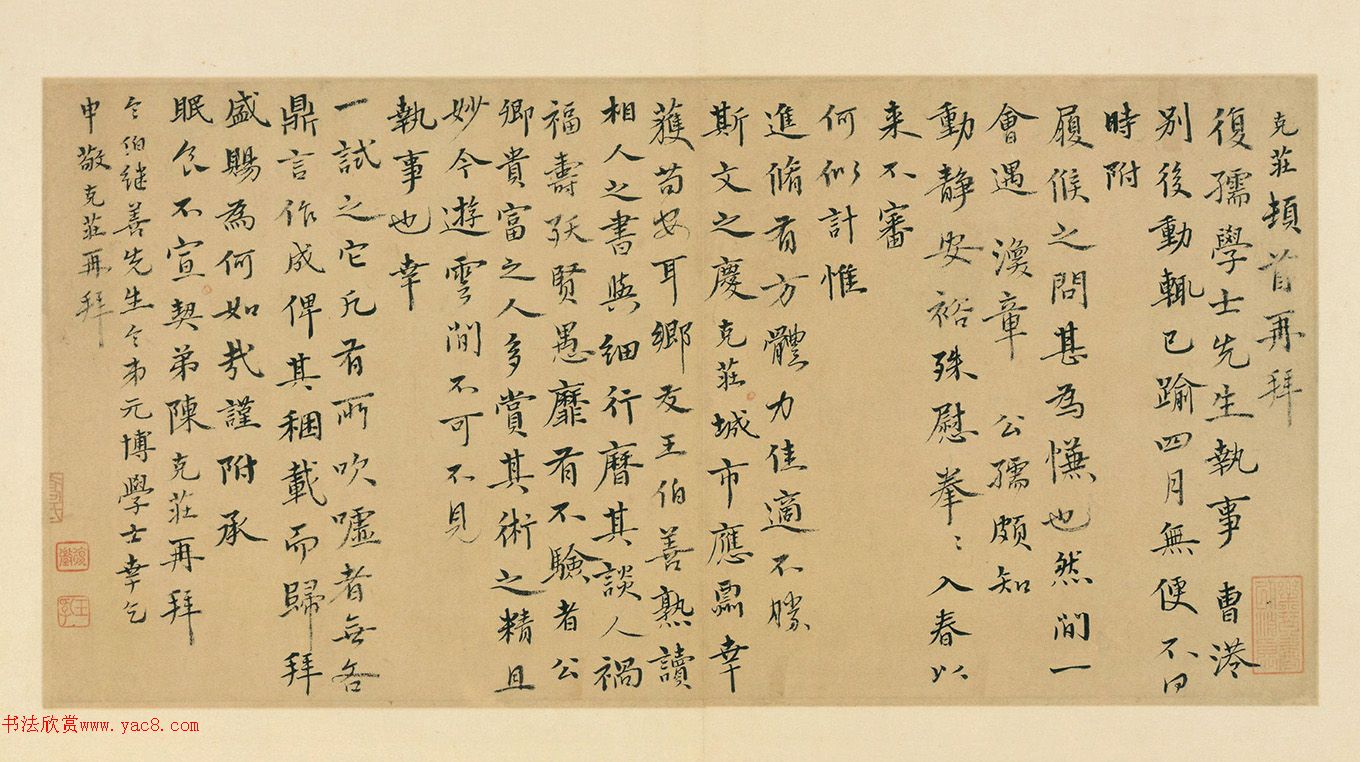 克莊頓首再拜
復孺學士先生執事曹港
別後動輒已踰四月無便不同
時附
履候之問甚為慊也然間一
會遇漢章公孺頗知
動靜安裕殊慰拳〻入春以
来不審
何似計惟
進脩有方體力佳適不勝
斯文之慶克莊城市應需幸
獲苟安耳鄉友王伯善熟讀
相人之書與細行曆其談人禍
福壽殀賢愚靡有不驗者公
卿貴富之人多賞其術之精且
妙今遊雲間不可不見
執事也幸
一試之它凡有所吹噓者無吝
鼎言作成俾其稛載而歸拜
盛賜為何如哉謹附承
眠食不宣契弟陳克莊再拜
令伯継善先生令弟元博學士幸乞
申敬克莊再拜
书法欣赏www.yac8.com